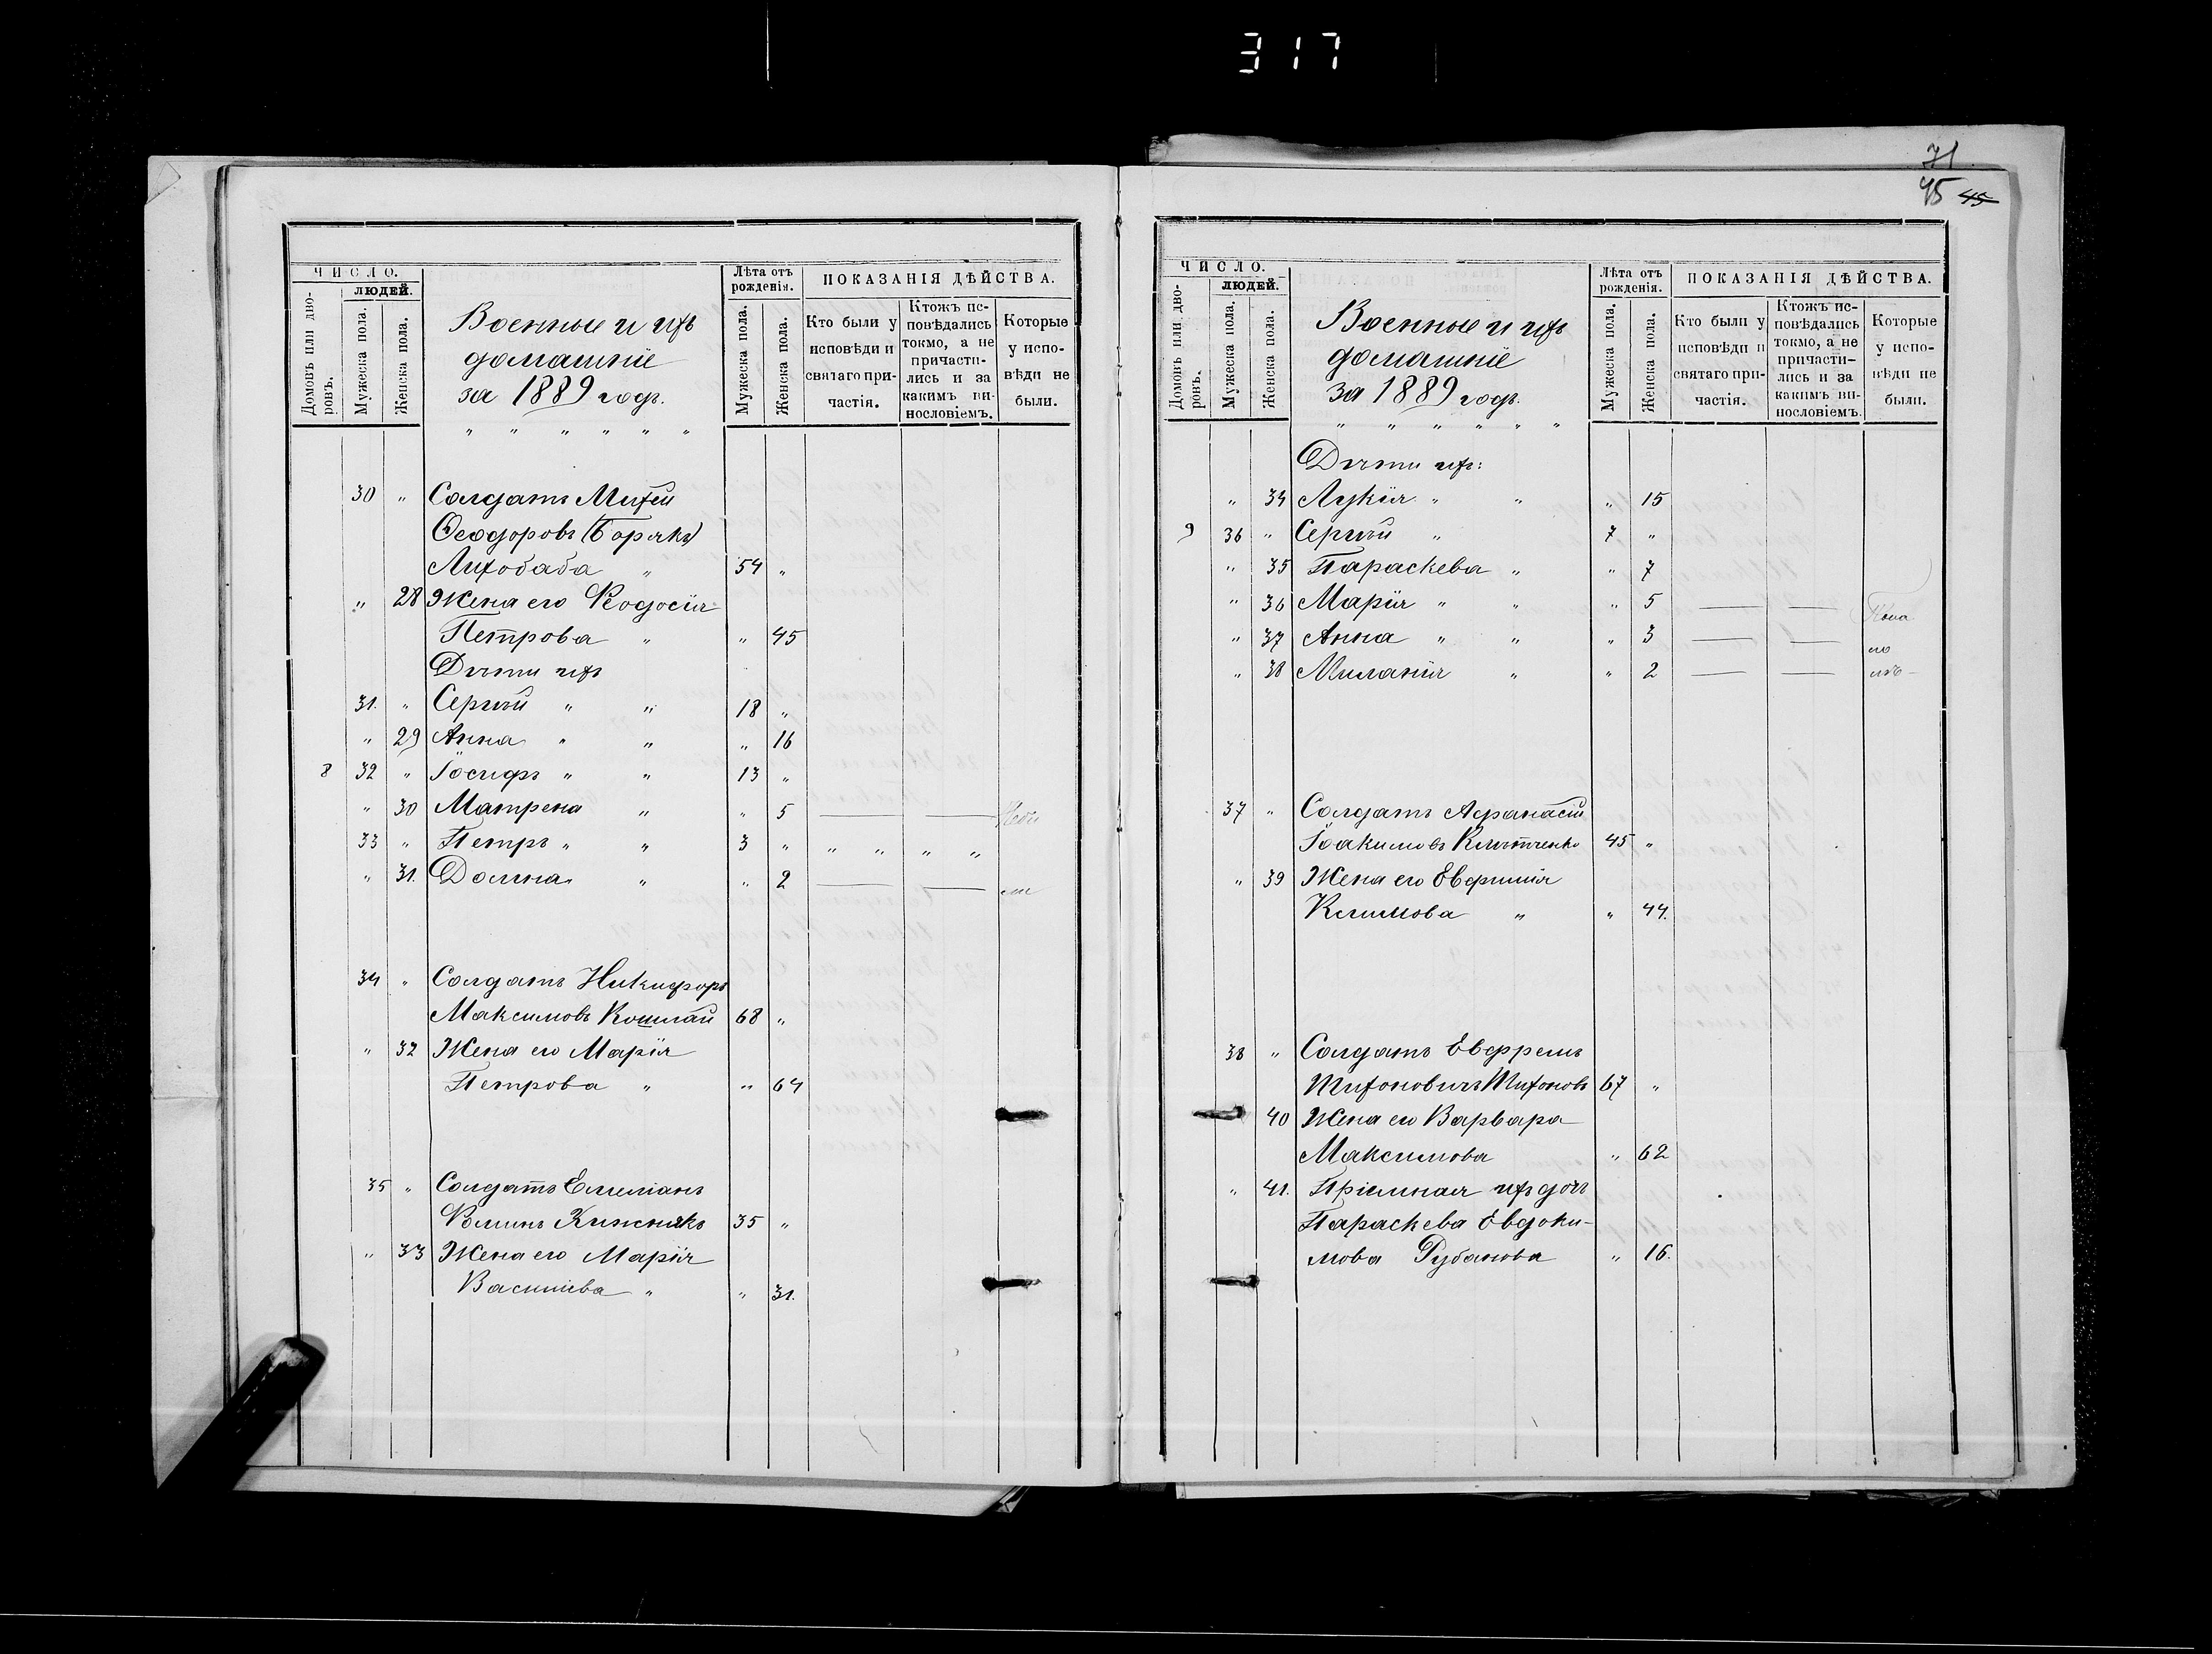 317
71
45 45
ЧИСЛО.
ЛЮДЕЙ.
Домовъ или дворовъ.
Мужеска пола.
Женска пола.
Военные и ихъ
домашніе
за 1889 годъ.
" " " " " "
Лѣта отъ рожденія.
Мужеска пола.
Женска пола.
ПОКАЗАНІЯ ДѢЙСТВА.
Кто были у исповѣди и святаго причастія.
Ктожъ исповѣдались токмо, а не причастились и за какимъ винословіемъ.
Которые у исповѣди не были.
30 " Солдатъ Михей
Ѳеодоровъ (Борякъ)
Лихобаба " 54 "
" 28 Жена его Ѳеодосія
Петрова " " 45
Дѣти ихъ
31. " Сергѣй " " 18 "
" 29 Анна " " " 16
8 32 " Іосифъ " " 13 "
" 30 Матрена " " 5 — —
33 " Петръ " " 3 " " " " "
" 31. Домна " " 2 — —
34 " Солдатъ Никифоръ
Максимовъ Кошлай 68 "
" 32 Жена его Марія
Петрова " " 64
35 " Солдатъ Емеліанъ
Ѳоминъ Книжникъ 35 "
" 33 Жена его Марія
Василіева " " 31.
ЧИСЛО.
ЛЮДЕЙ.
Домовъ или дворовъ.
Мужеска пола.
Женска пола.
Военные и ихъ
домашніе
за 1889 годъ.
" " " " " "
Лѣта отъ рожденія.
Мужеска пола.
Женска пола.
ПОКАЗАНІЯ ДѢЙСТВА.
Кто были у исповѣди и святаго причастія.
Ктожъ исповѣдались токмо, а не причастились и за какимъ винословіемъ.
Которые у исповѣди не были.
Дѣти ихъ:
" 34 Лукія " " " 15
9 36 " Сергѣй " 7 "
" 35 Параскева " " 7
" 36 Марія " " " 5 — —
" 37 Анна " " " 3 — — по
" 38 Миланія " " 2 — —
37 " Солдатъ Афанасій
Іоакимовъ 45 "
" 39 Жена его Евфимія
Климова " " 44.
38 " Солдатъ Евфремъ
Тихоновичъ Тихоновъ 67 "
40 Жена его Варвара
Максимова " 62
" 41. Пріемная ихъ дочь
Параскева Евдоки-
мова Рубанова " 16.